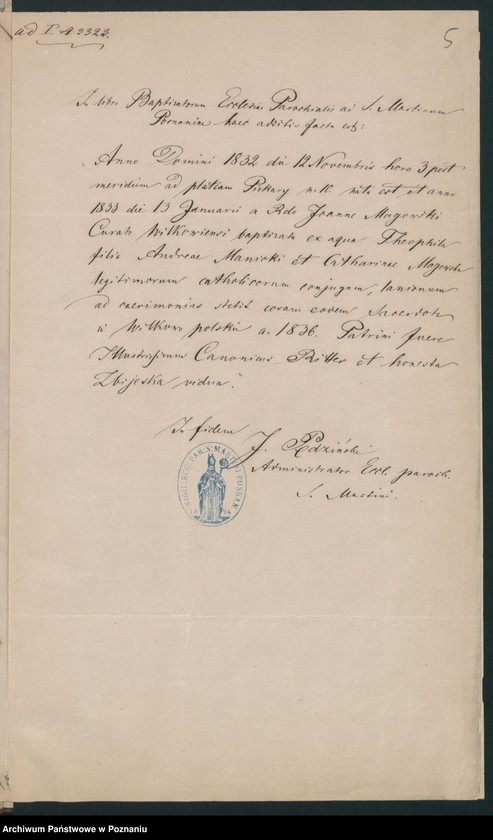 ad I. A. 3323.
5
In libro Baptizatorum Ecclesiae Parochialis ad S. Martinum
Posnaniae haec additio facta est:
"Anno Domini 1832 die 12 Novembris hora 3 post
meridiem ad plateam Piekary n. K. nata est, et anno
1833 die 13 Januarii a Rdo Joanne Magowski
Curato Wilkowiensi baptizata ex aqua Theophila
filia Andreae Manicki et Catharinae
legitimorum catholicorum conjugum, lanionum
ad caerimonias stetit coram eodem Sacerdote
in Wilkowo polskie a. 1836. Patrini fuere
Illustrissimus Canonicus Ritter et honesta
Zbijeska vidua."
In fidem
J.
Administrator Eccl. paroch.
S. Martini.
SIGIL. ECCL. PAR. S. MARTINI POSNAN.
Archiwum Państwowe w Poznaniu